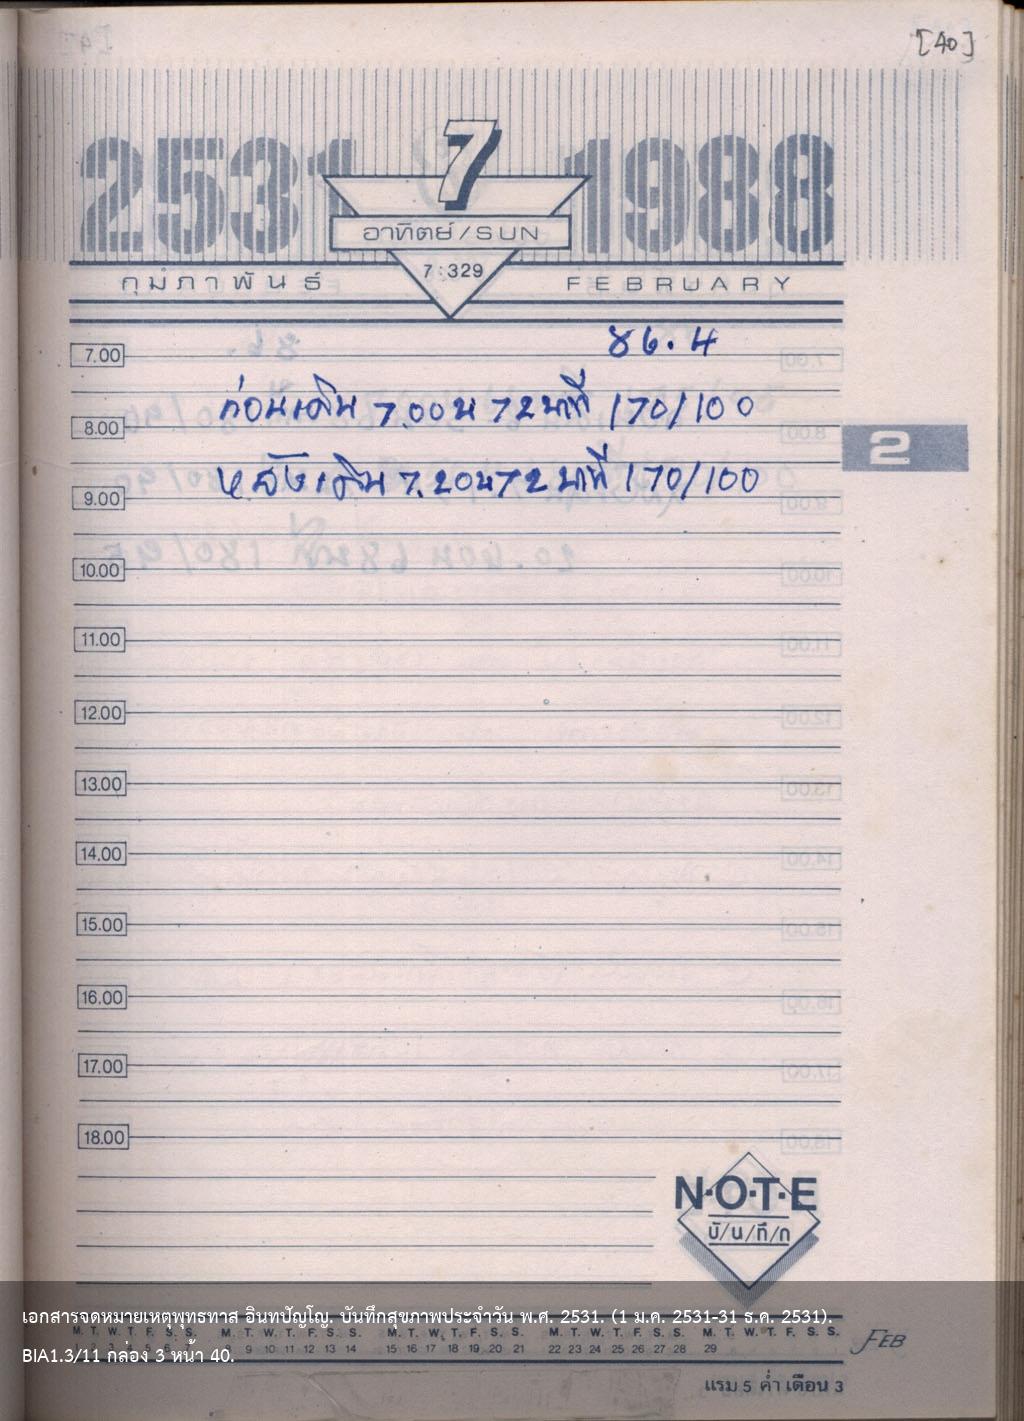 [40]
2531 7 1988
อาทิตย์/SUN
7:329
กุมภาพันธ์ FEBRUARY
86.4
7.00
ก่อนเดิน 7.00น 72 นาที 170/100
8.00
2
หลังเดิน 7.20น 72 นาที 170/100
9.00
10.00
11.00
12.00
13.00
14.00
15.00
16.00
17.00
18.00
N·O·T·E
บั/น/ทึ/ก
เอกสารจดหมายเหตุพุทธทาส อินทปัญโญ. บันทึกสุขภาพประจำวัน พ.ศ. 2531. (1 ม.ค. 2531-31 ธ.ค. 2531).
M. T. W. T. F. S. S. M. T. W. T. F. S. S. M. T. W. T. F. S. S. M. T. W. T. F. S. S. M. T. W. T. F. S. S.
8 9 10 11 12 13 14 15 16 17 18 19 20 21 22 23 24 25 26 27 28 29
FEB
BIA1.3/11 กล่อง 3 หน้า 40.
แรม 5 ค่ำ เดือน 3